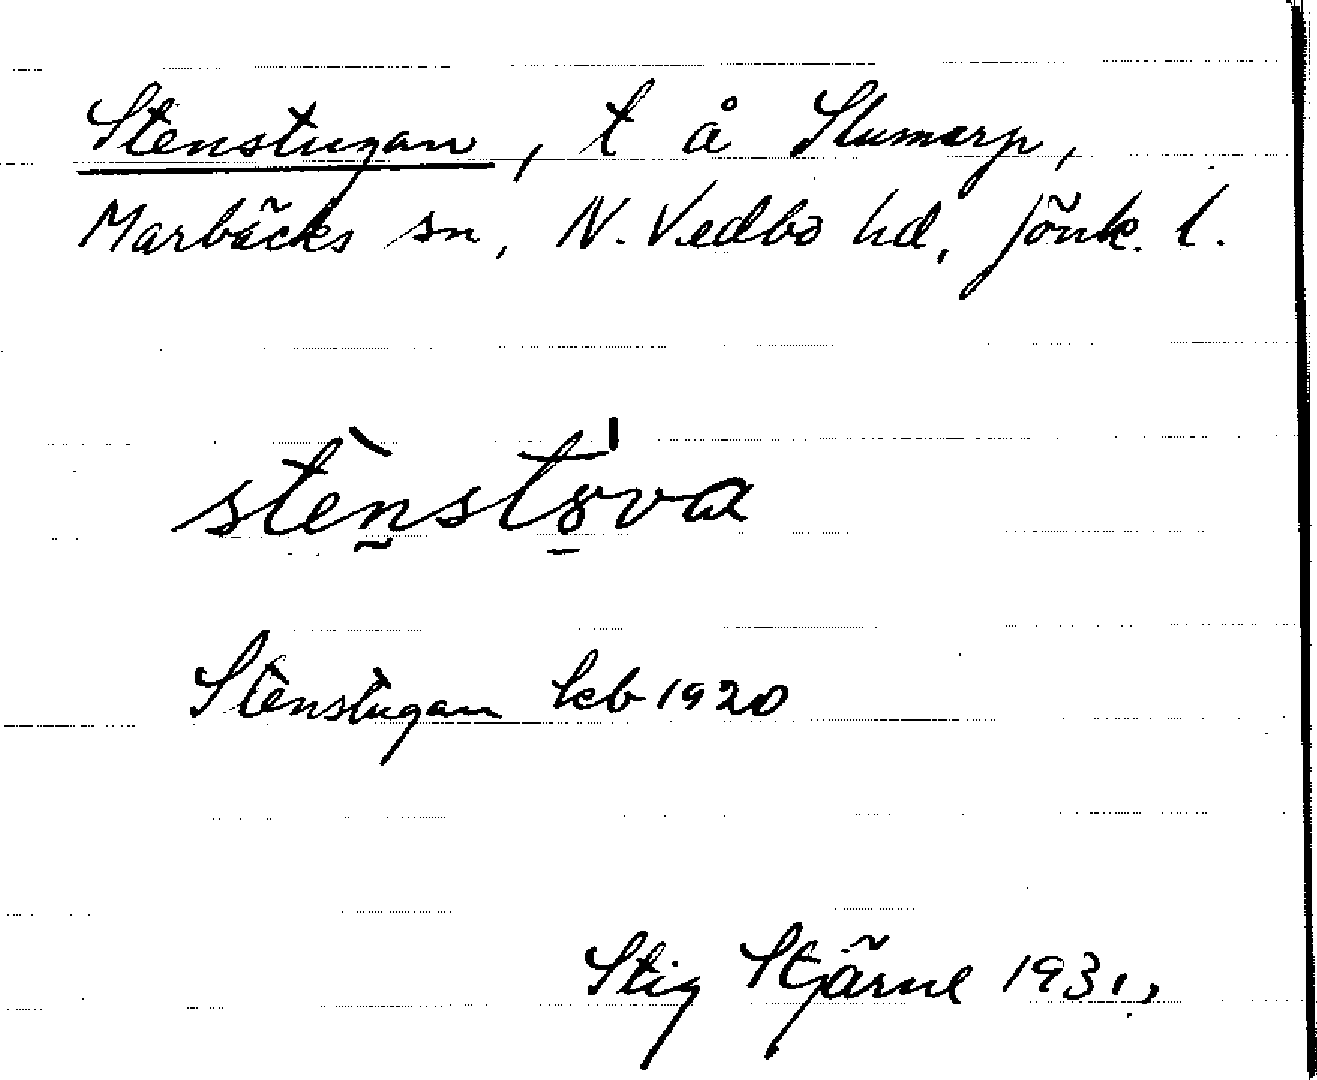 Stenstugan, t å Slumarp,
Marbäcks sn, N. Vedbo hd, Jönk. l.
stènstȣva
Stenstugan kb 1920
Stig Stjärne 1931,